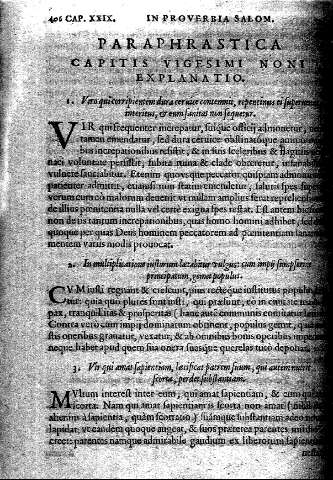 406 CAP. XXIX. IN PROVERBIA SALOM.
PARAPHRASTICA
CAPITIS VIGESIMI NONI
EXPLANATIO.
1. Viro qui corripientem dura ceruice contemnit, repentinus ei superueniet
interitus, & eum sanitas non sequetur.
VIR qui frequenter increpatur, suique officij admonetur, nec
tamen emendatur, sed dura ceruice obstinatoque animo
bus increpationibus resistit, & in suis sceleribus & flagitijs
naci voluntate persistit, subita ruina & clade obteretur, insanabili
vulnere sauciabitur. Etenim quoad quis peccator quispiam admonitionem
patienter admittit, etiamsi non statim emendetur, salutis spes superest
verum cum eò malorum deuenit vt nullam amplius ferat reprehensionem
de illius penitentia nulla vel certe exigua spes restat. Est autem hic
non de ijs tantum increpationibus, quas homo homini adhibet, sed de
quoque per quas Deus hominem peccatorem ad pœnitentiam
mentem varijs modis prouocat.
2. In multiplicatione iustorum lætabitur vulgus: cum impij sumpserint
principatum, gemet populus.
CVM iusti regnant & crescunt, piis rectéque institutus populus
tur: quia quò plures sunt iusti, qui præsunt, eò in ciuitate maior
pax, tranquilitas & prosperitas (hanc autè communis comitatur lætitia)
Contra verò cum impij dominatum obtinent, populus gemit, quia
istis oneribus grauatur, vexatur, & ab omnibus bonis opecibus
neque habet apud quem sua onera suasque querelas tutò deponat.
3. Vir qui amat sapientiam, lætificat patrem suum, qui autem nutrit
scorta, perdet substantiam.
MVltum interest inter eum, qui amat sapientiam, & eum qui
scorta. Nam qui amat sapientiam is scorta non amat (nihil
alienius à sapientia, quàm scortatio) suamque substantiam
lapidat, vt eandem quoque augeat, & suos præterea parentes
creet: parentes namque admirabile gaudium ex liberorum sapientia